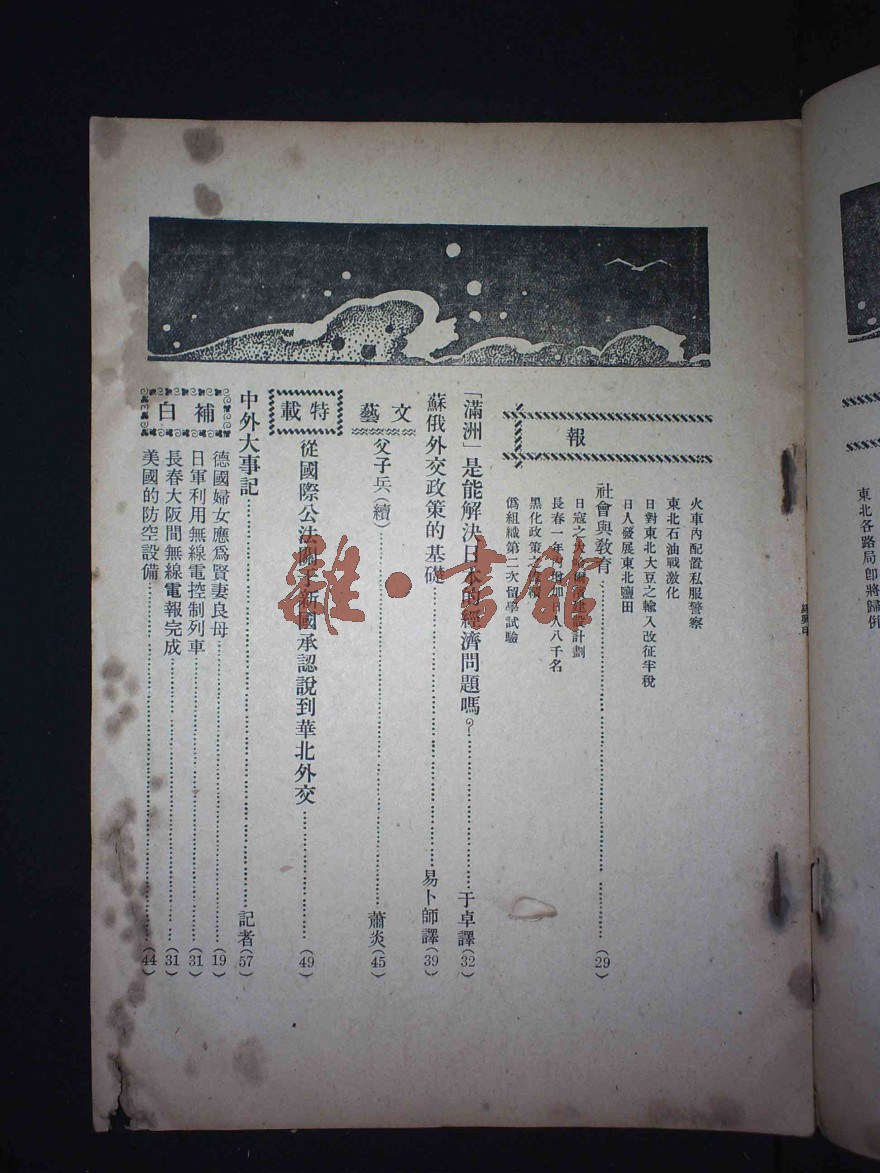 報
火車內配置私服警察
東北石油戰激化
日對東北大豆之輸入改征半稅
日人發展東北鹽田
社會與教育……(29)
長春一年內增加日人八千名
黑化政策之
僞組織第二次留學試驗
「滿洲」是能解決日本的經濟問題嗎？……于卓譯(32)
蘇俄外交政策的基礎……易卜師譯(39)
文藝
父子兵(續)……蕭炎(45)
特載
從國際公法關于新國承認說到華北外交……(49)
中外大事記……記者(57)
補白
德國婦女應爲賢妻良母……(19)
日軍利用無線電控制列車……(31)
長春大阪間無線電報完成……(31)
美國的防空設備……(44)
東北各路局即將歸併
雜·書館